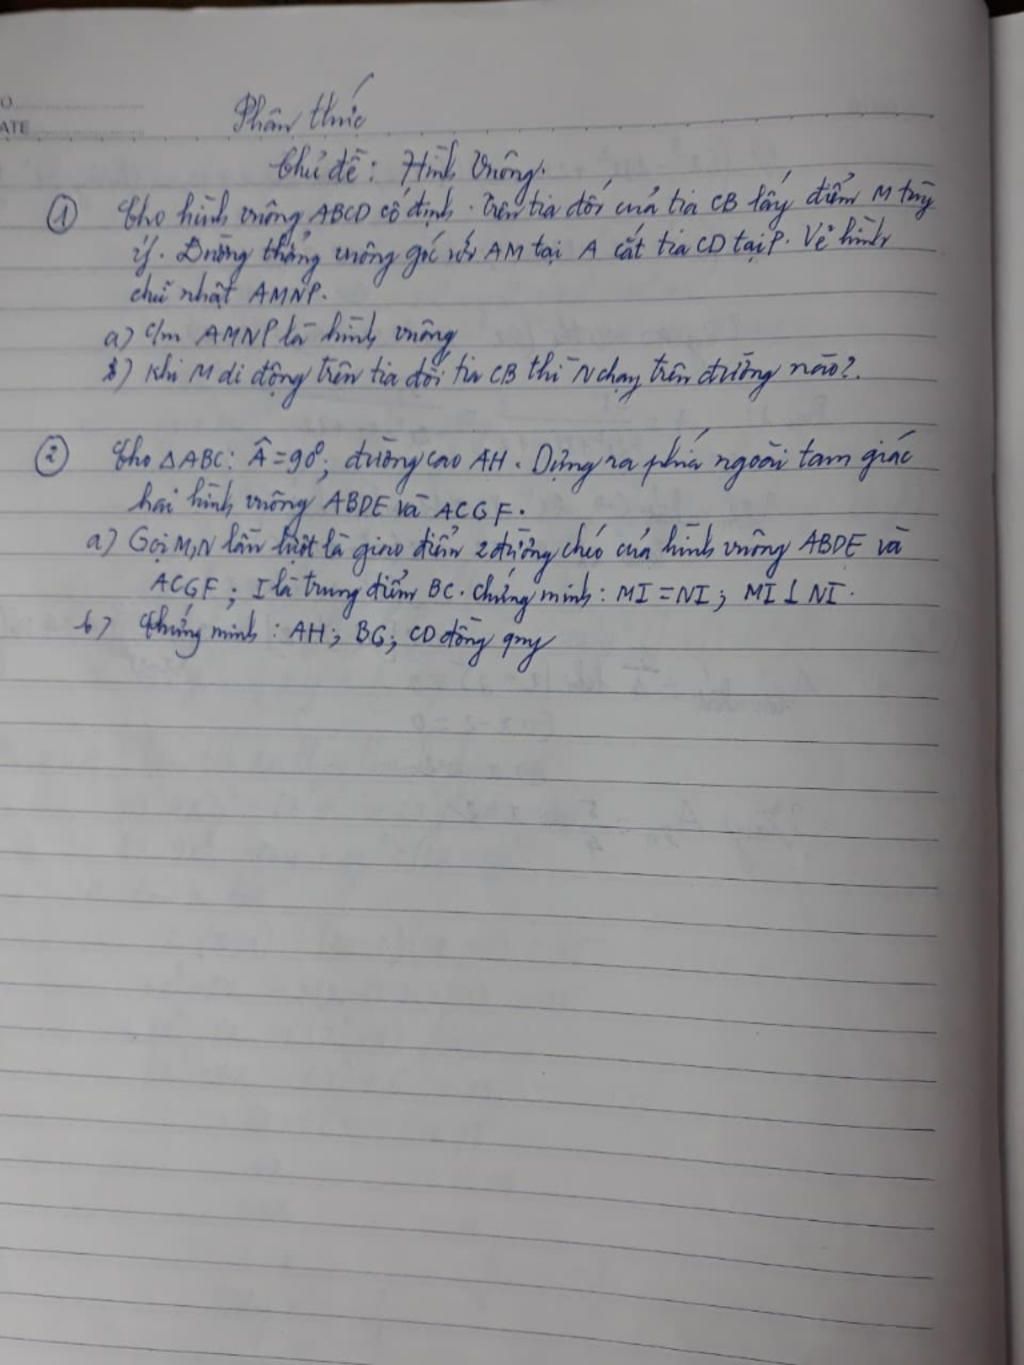 O
ATE
Phân thức
Chủ đề: Hình Vuông.
① Cho hình vuông ABCD cố định. Trên tia đối của tia CB lấy điểm M tùy
ý. Đường thẳng vuông góc với AM tại A cắt tia CD tại P. Vẽ hình
chữ nhật AMNP.
a) C/m AMNP là hình vuông
b) Khi M di động trên tia đối tia CB thì N chạy trên đường nào?.
② Cho ΔABC: Â=90°; đường cao AH. Dựng ra phía ngoài tam giác
hai hình vuông ABDE và ACGF.
a) Gọi M,N lần lượt là giao điểm 2 đường chéo của hình vuông ABDE và
ACGF; I là trung điểm BC. chứng minh: MI = NI; MI ⊥ NI.
b) Chứng minh: AH; BG; CD đồng quy